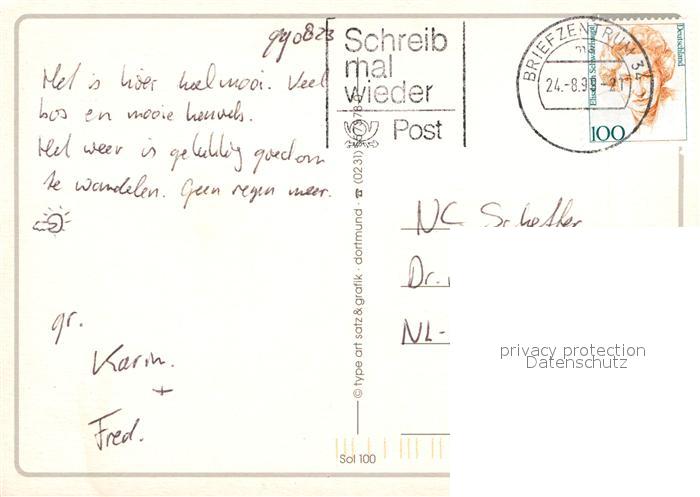 990823
Het is hier heel mooi. Veel
bos en mooie heuvels.
Het weer is gelukkig goed om
te wandelen. Geen regen meer.
gr.
Karin.
+
Fred.
Schreib
mal
wieder
Post
BRIEFZENTRUM 34
24.-8.99-21
Deutschland
Elisabeth Schwarzhaupt
100
© type art satz & grafik · dortmund · ☎ (0231)
NC
Dr.
NL-
privacy protection
Datenschutz
Sol 100